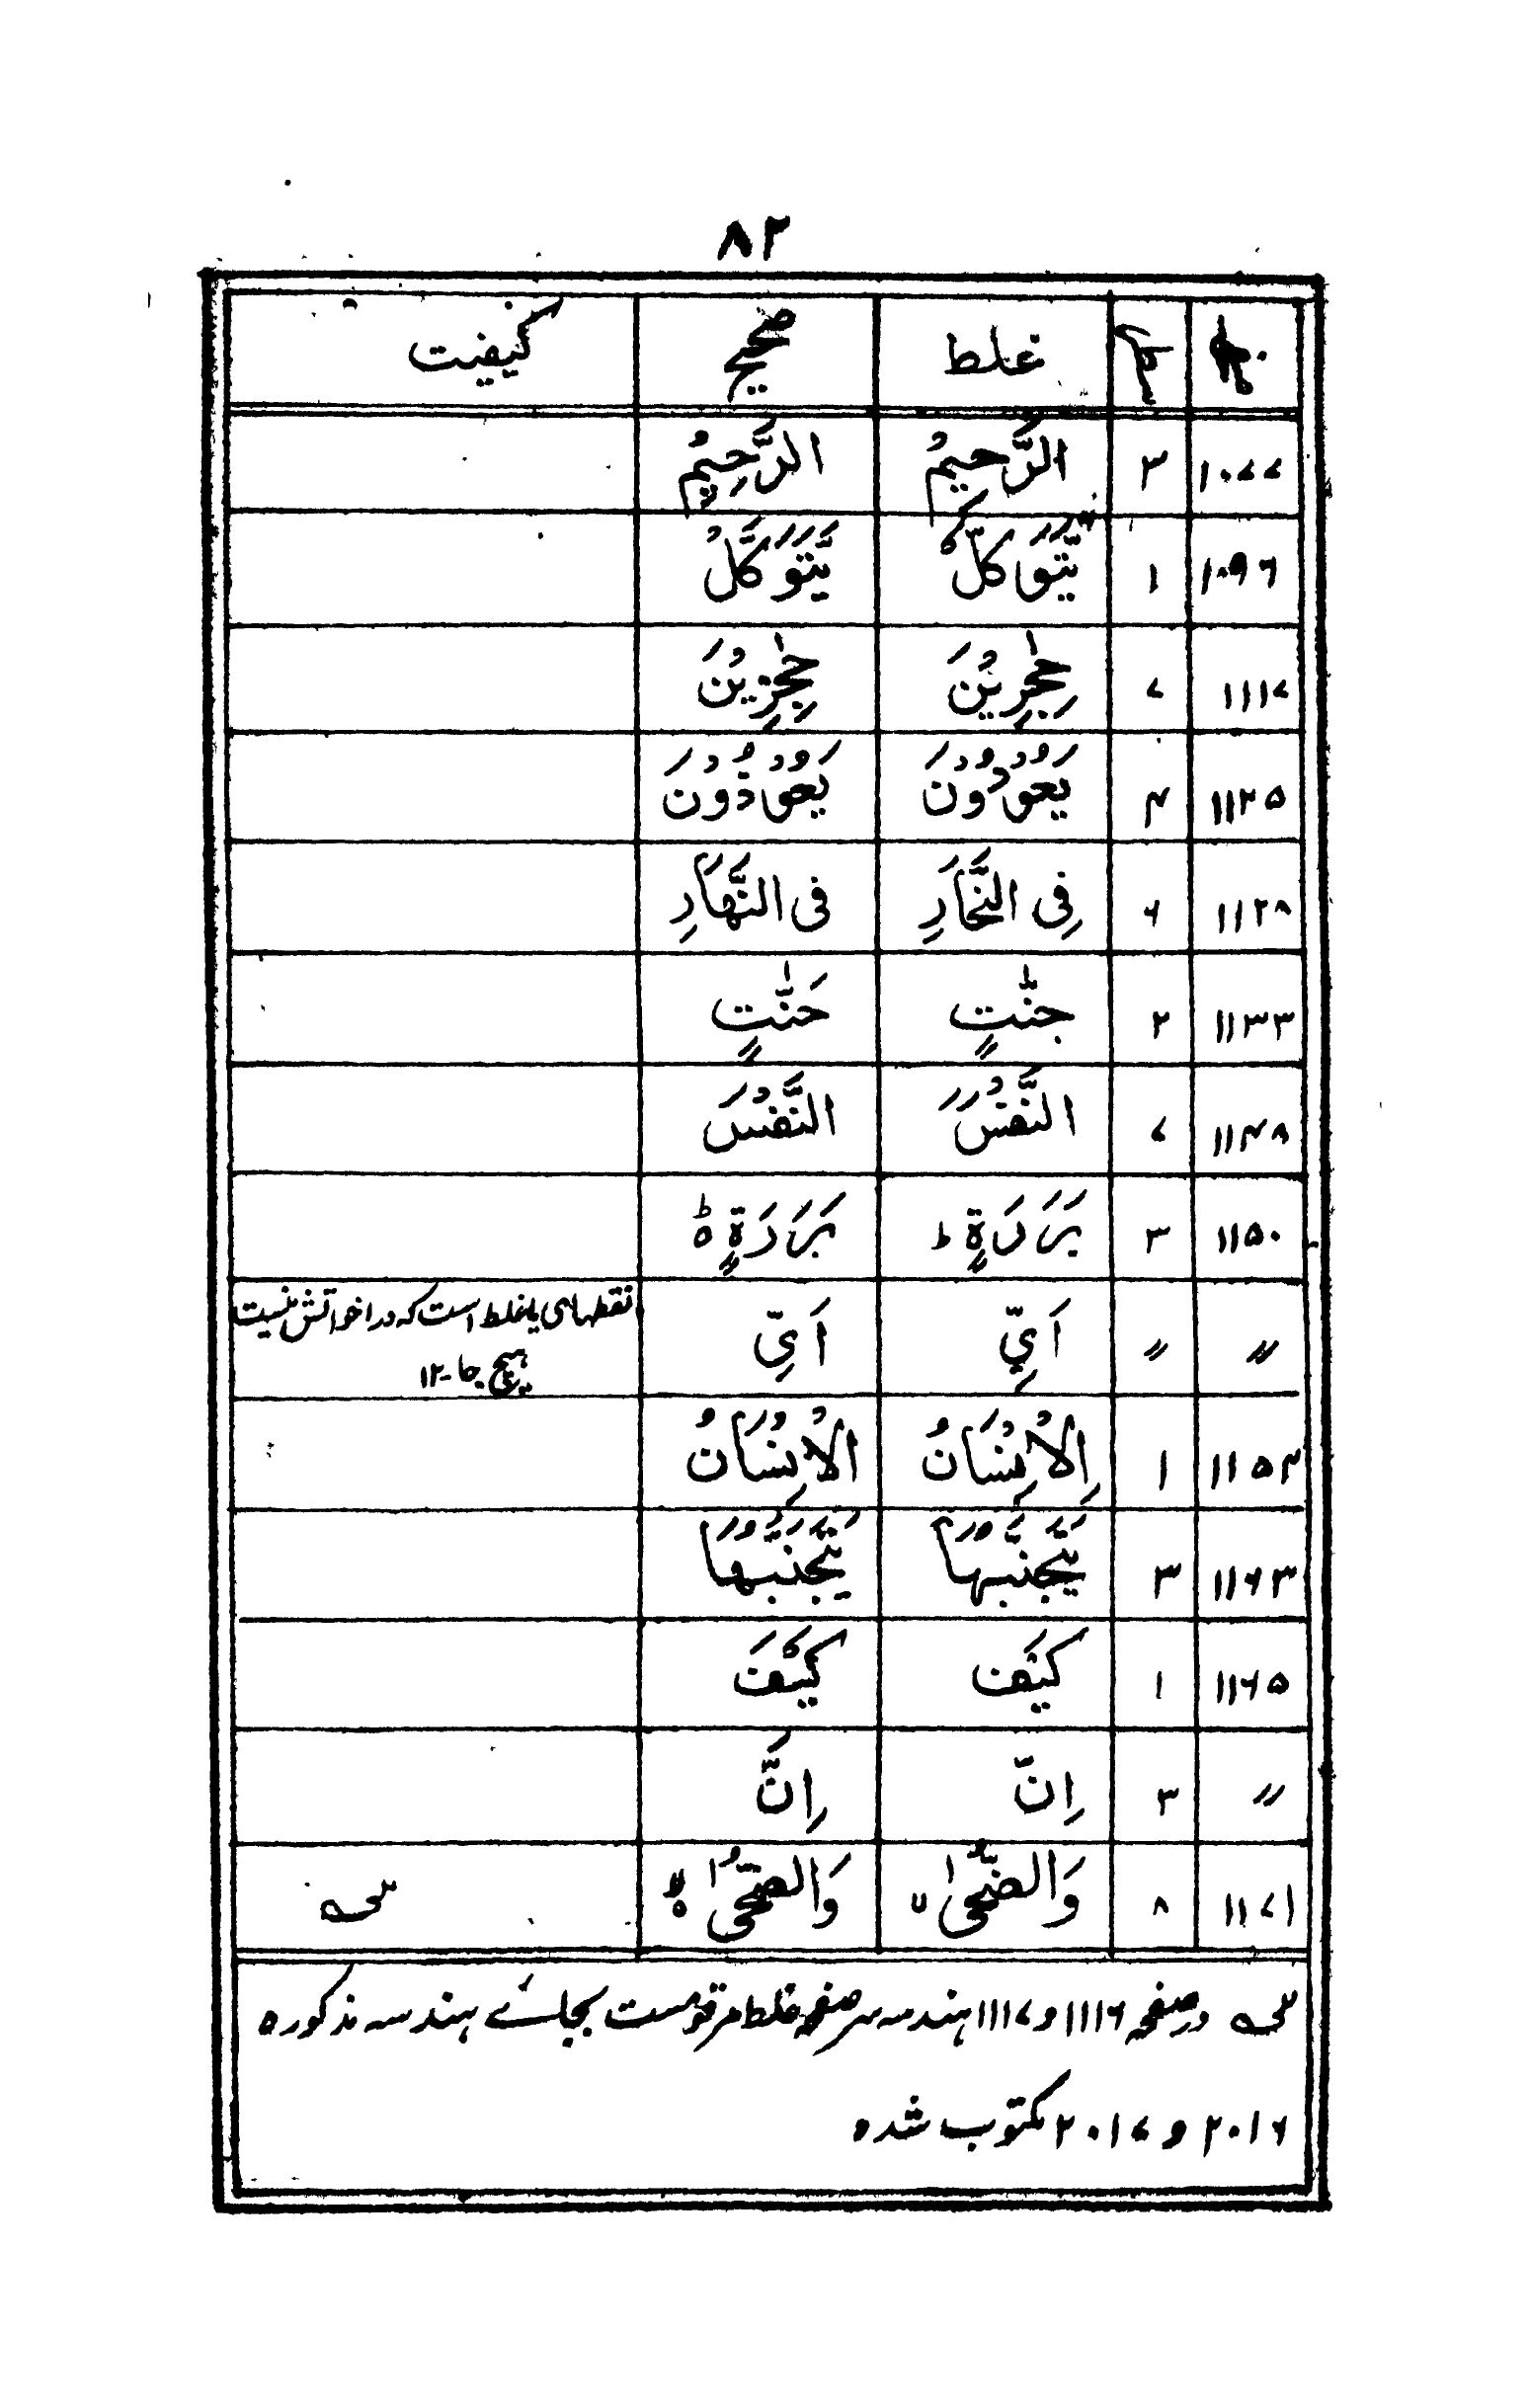 ۸۲
غلط صحیح کیفیت
۱۰۷۷ ۳ الرَّحیمُ الرَّحِیْمُ
۱۰۹۶ ۱ یَتَوَکلّْ یَّتَوَکَّلْ
۱۱۱۷ ۷ حٰجِرِیْنَ حٰجِزِیْنَ
۱۱۲۵ ۴ یَعُوْدُوْنَ یَعُوْذُوْنَ
۱۱۲۸ ۶ فِی النَّحَارِ فی النَّهَارِ
۱۱۳۳ ۲ جنّٰتٍ جَنّٰتٍ
۱۱۴۸ ۷ النَّفْسَ النَّفْسَ
۱۱۵۰ ۳ بَرَرَةٍ ط بَرَرَةٍ ؕ
〃 〃 اَیِّ اَیِّ نقطهای یا غلط است که در اخواتش نیست
هیچ جا-۱۲
۱۱۵۴ ۱ اِلْاِنْسَانُ الْاِنْسَانُ
۱۱۶۳ ۳ یَتَجَنَّبُهَا یَتَجَنَّبُهَا
۱۱۶۵ ۱ کَیْفَ کَیْفَ
〃 ۳ اِنّ اِنَّ
۱۱۷۱ ۸ وَالضُّحٰی وَالضُّحٰی
در صفحه ۱۱۱۶ و ۱۱۱۷ هندسه سر صفحه غلط مرقومست بجائے هندسه مذکوره
۲۰۱۶ و ۲۰۱۷ مکتوب شده